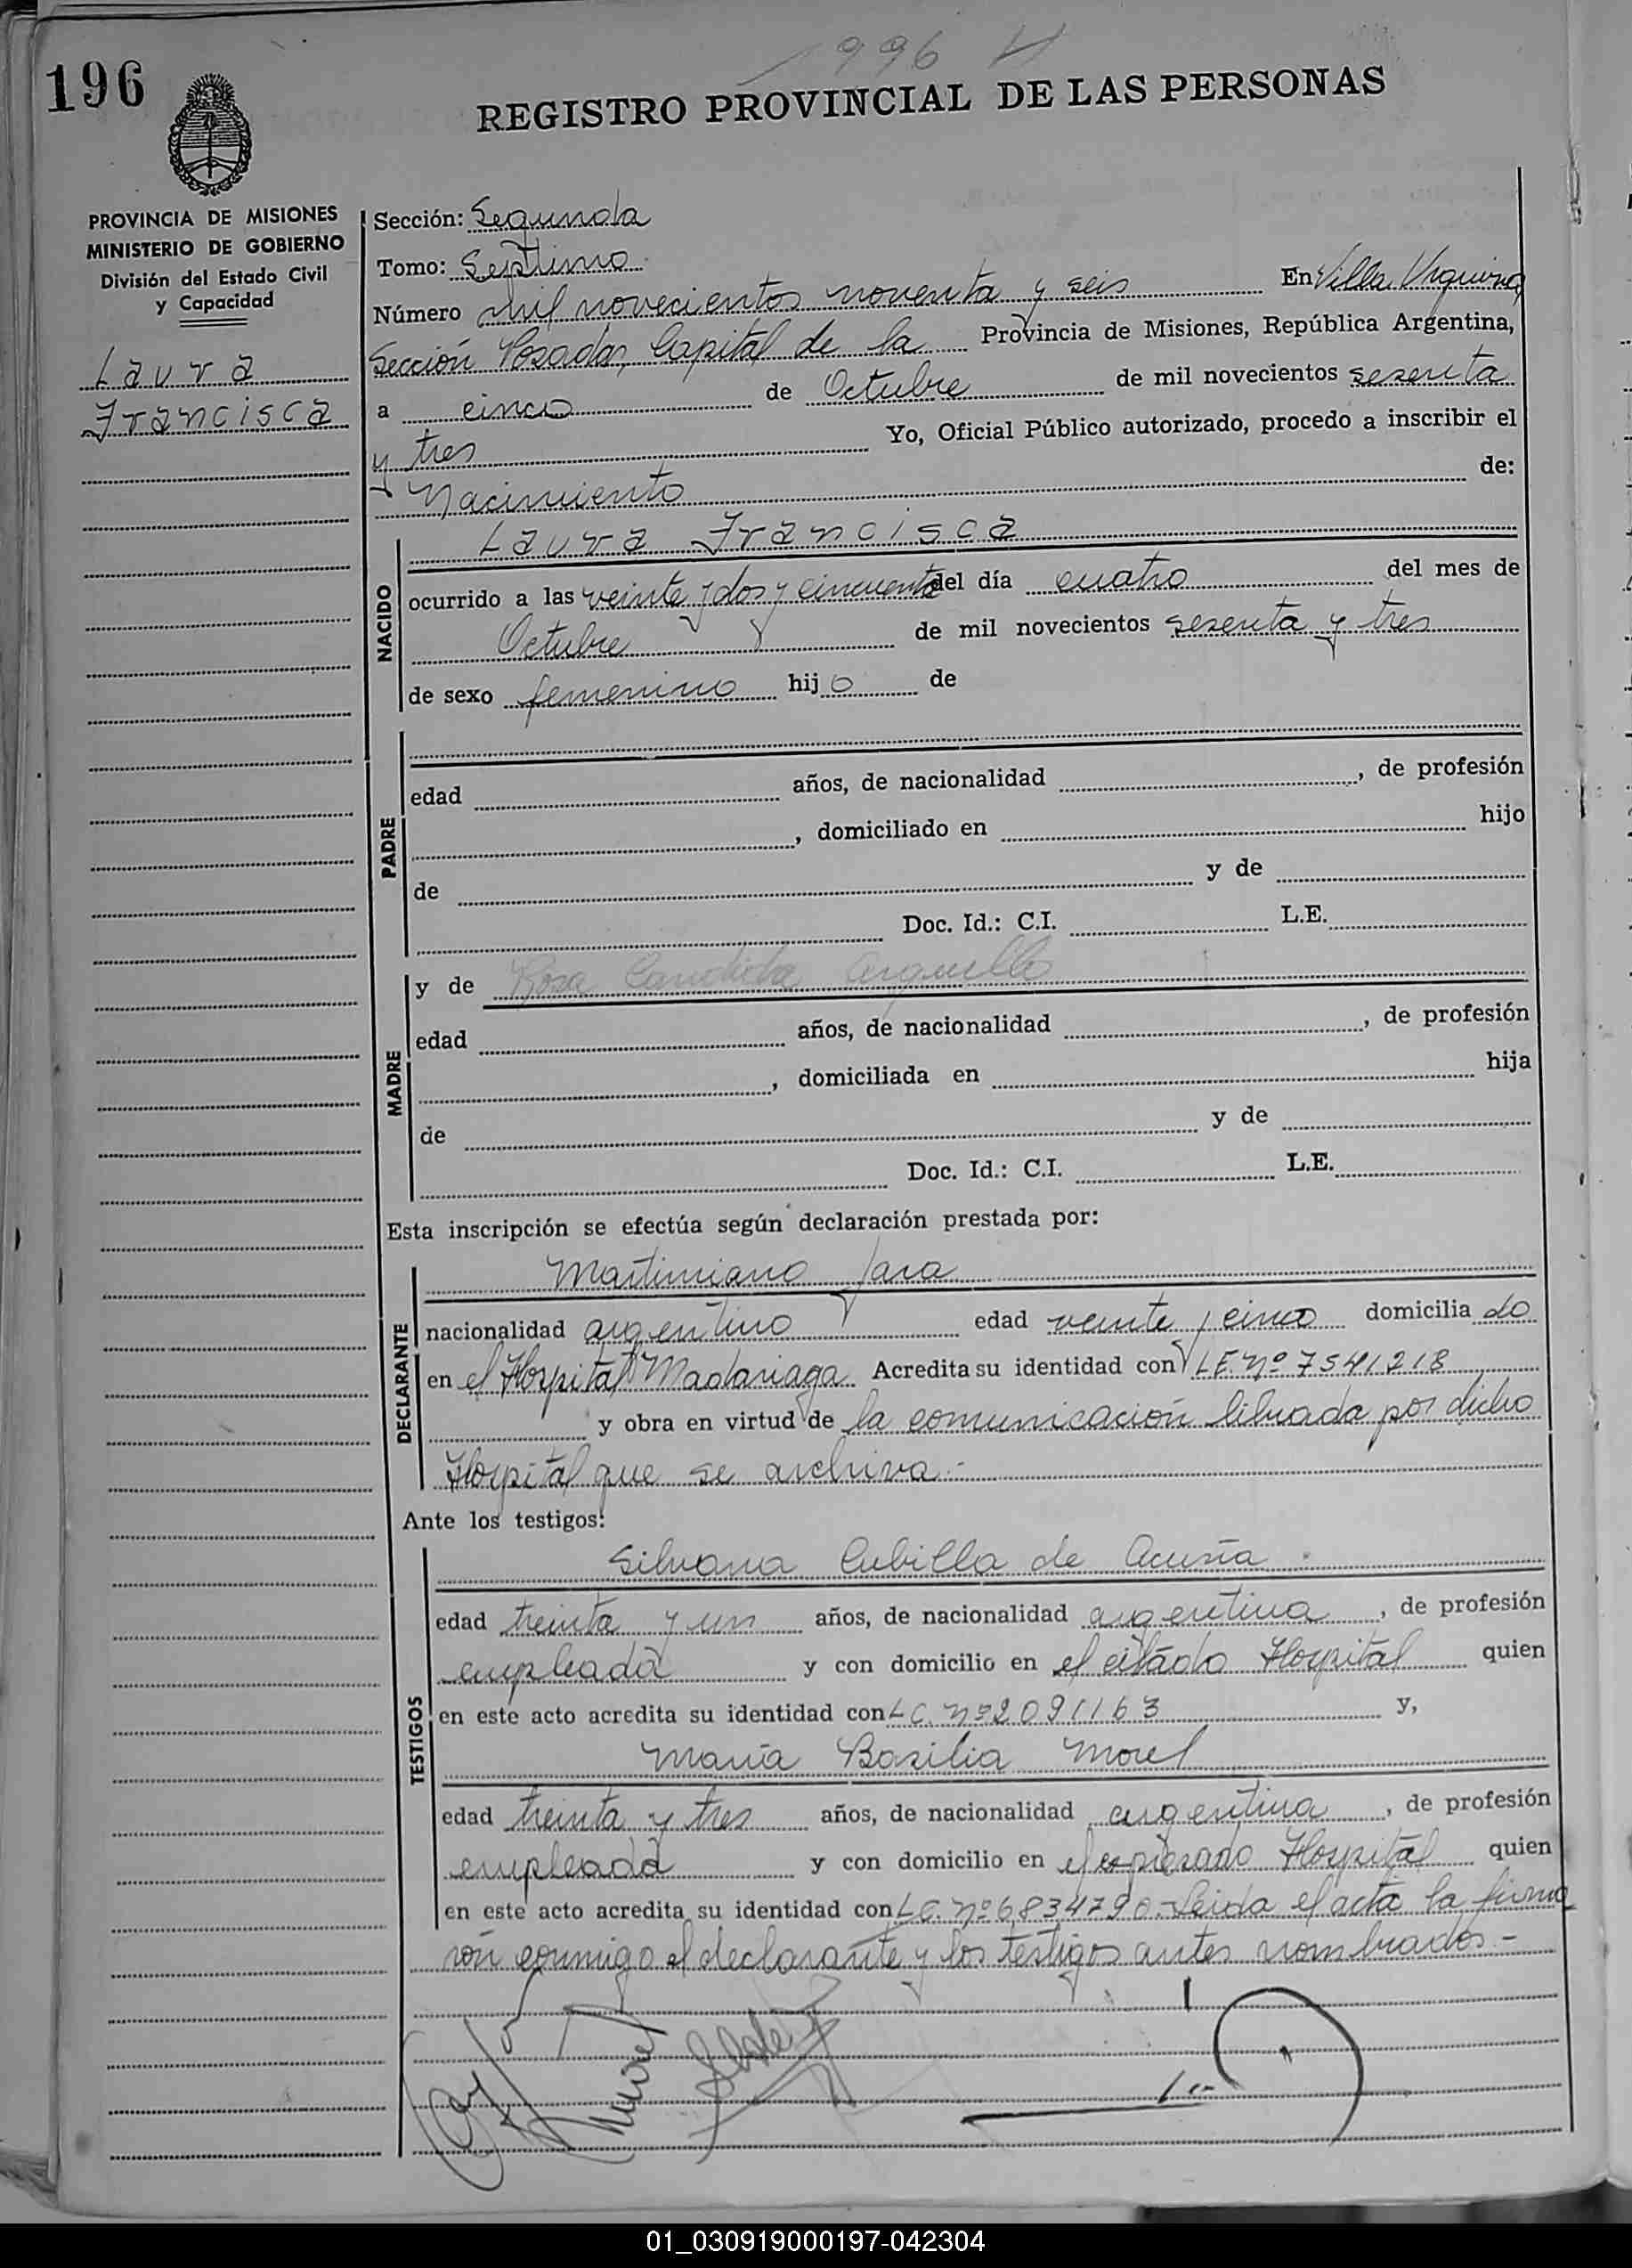 1996 N
196
REGISTRO PROVINCIAL DE LAS PERSONAS
PROVINCIA DE MISIONES
MINISTERIO DE GOBIERNO
División del Estado Civil
y Capacidad
Laura
Francisca
Sección: Segunda
Tomo: Septimo
Número mil novecientos noventa y seis En Villa Urquiza
Sección Posadas, Capital de la Provincia de Misiones, República Argentina,
a cinco de Octubre de mil novecientos sesenta
y tres Yo, Oficial Público autorizado, procedo a inscribir el
Nacimiento de:
NACIDO
Laura Francisca
ocurrido a las veinte y dos y cincuenta del día cuatro del mes de
Octubre de mil novecientos sesenta y tres
de sexo femenino hijo de
PADRE
edad años, de nacionalidad , de profesión
, domiciliado en hijo
de y de
Doc. Id.: C.I. L.E.
MADRE
y de Rosa Candida Arguello
edad años, de nacionalidad , de profesión
, domiciliada en hija
de y de
Doc. Id.: C.I. L.E.
Esta inscripción se efectúa según declaración prestada por:
DECLARANTE
Martimiano Jara
nacionalidad argentino edad veinte y cinco domicilia do
en el Hospital Madariaga Acredita su identidad con L.E. Nº 7541218
y obra en virtud de la comunicación librada por dicho
Hospital que se archiva.-
Ante los testigos:
TESTIGOS
Silvana Cubilla de Acuña
edad treinta y un años, de nacionalidad argentina, de profesión
empleada y con domicilio en el citado Hospital quien
en este acto acredita su identidad con L.C. Nº 2091163 y,
María Basilia Morel
edad treinta y tres años, de nacionalidad argentina, de profesión
empleada y con domicilio en el expresado Hospital quien
en este acto acredita su identidad con L.C. Nº 6834790.- Leida el acta la firma
rón conmigo el declarante y los testigos antes nombrados -
01_030919000197-042304